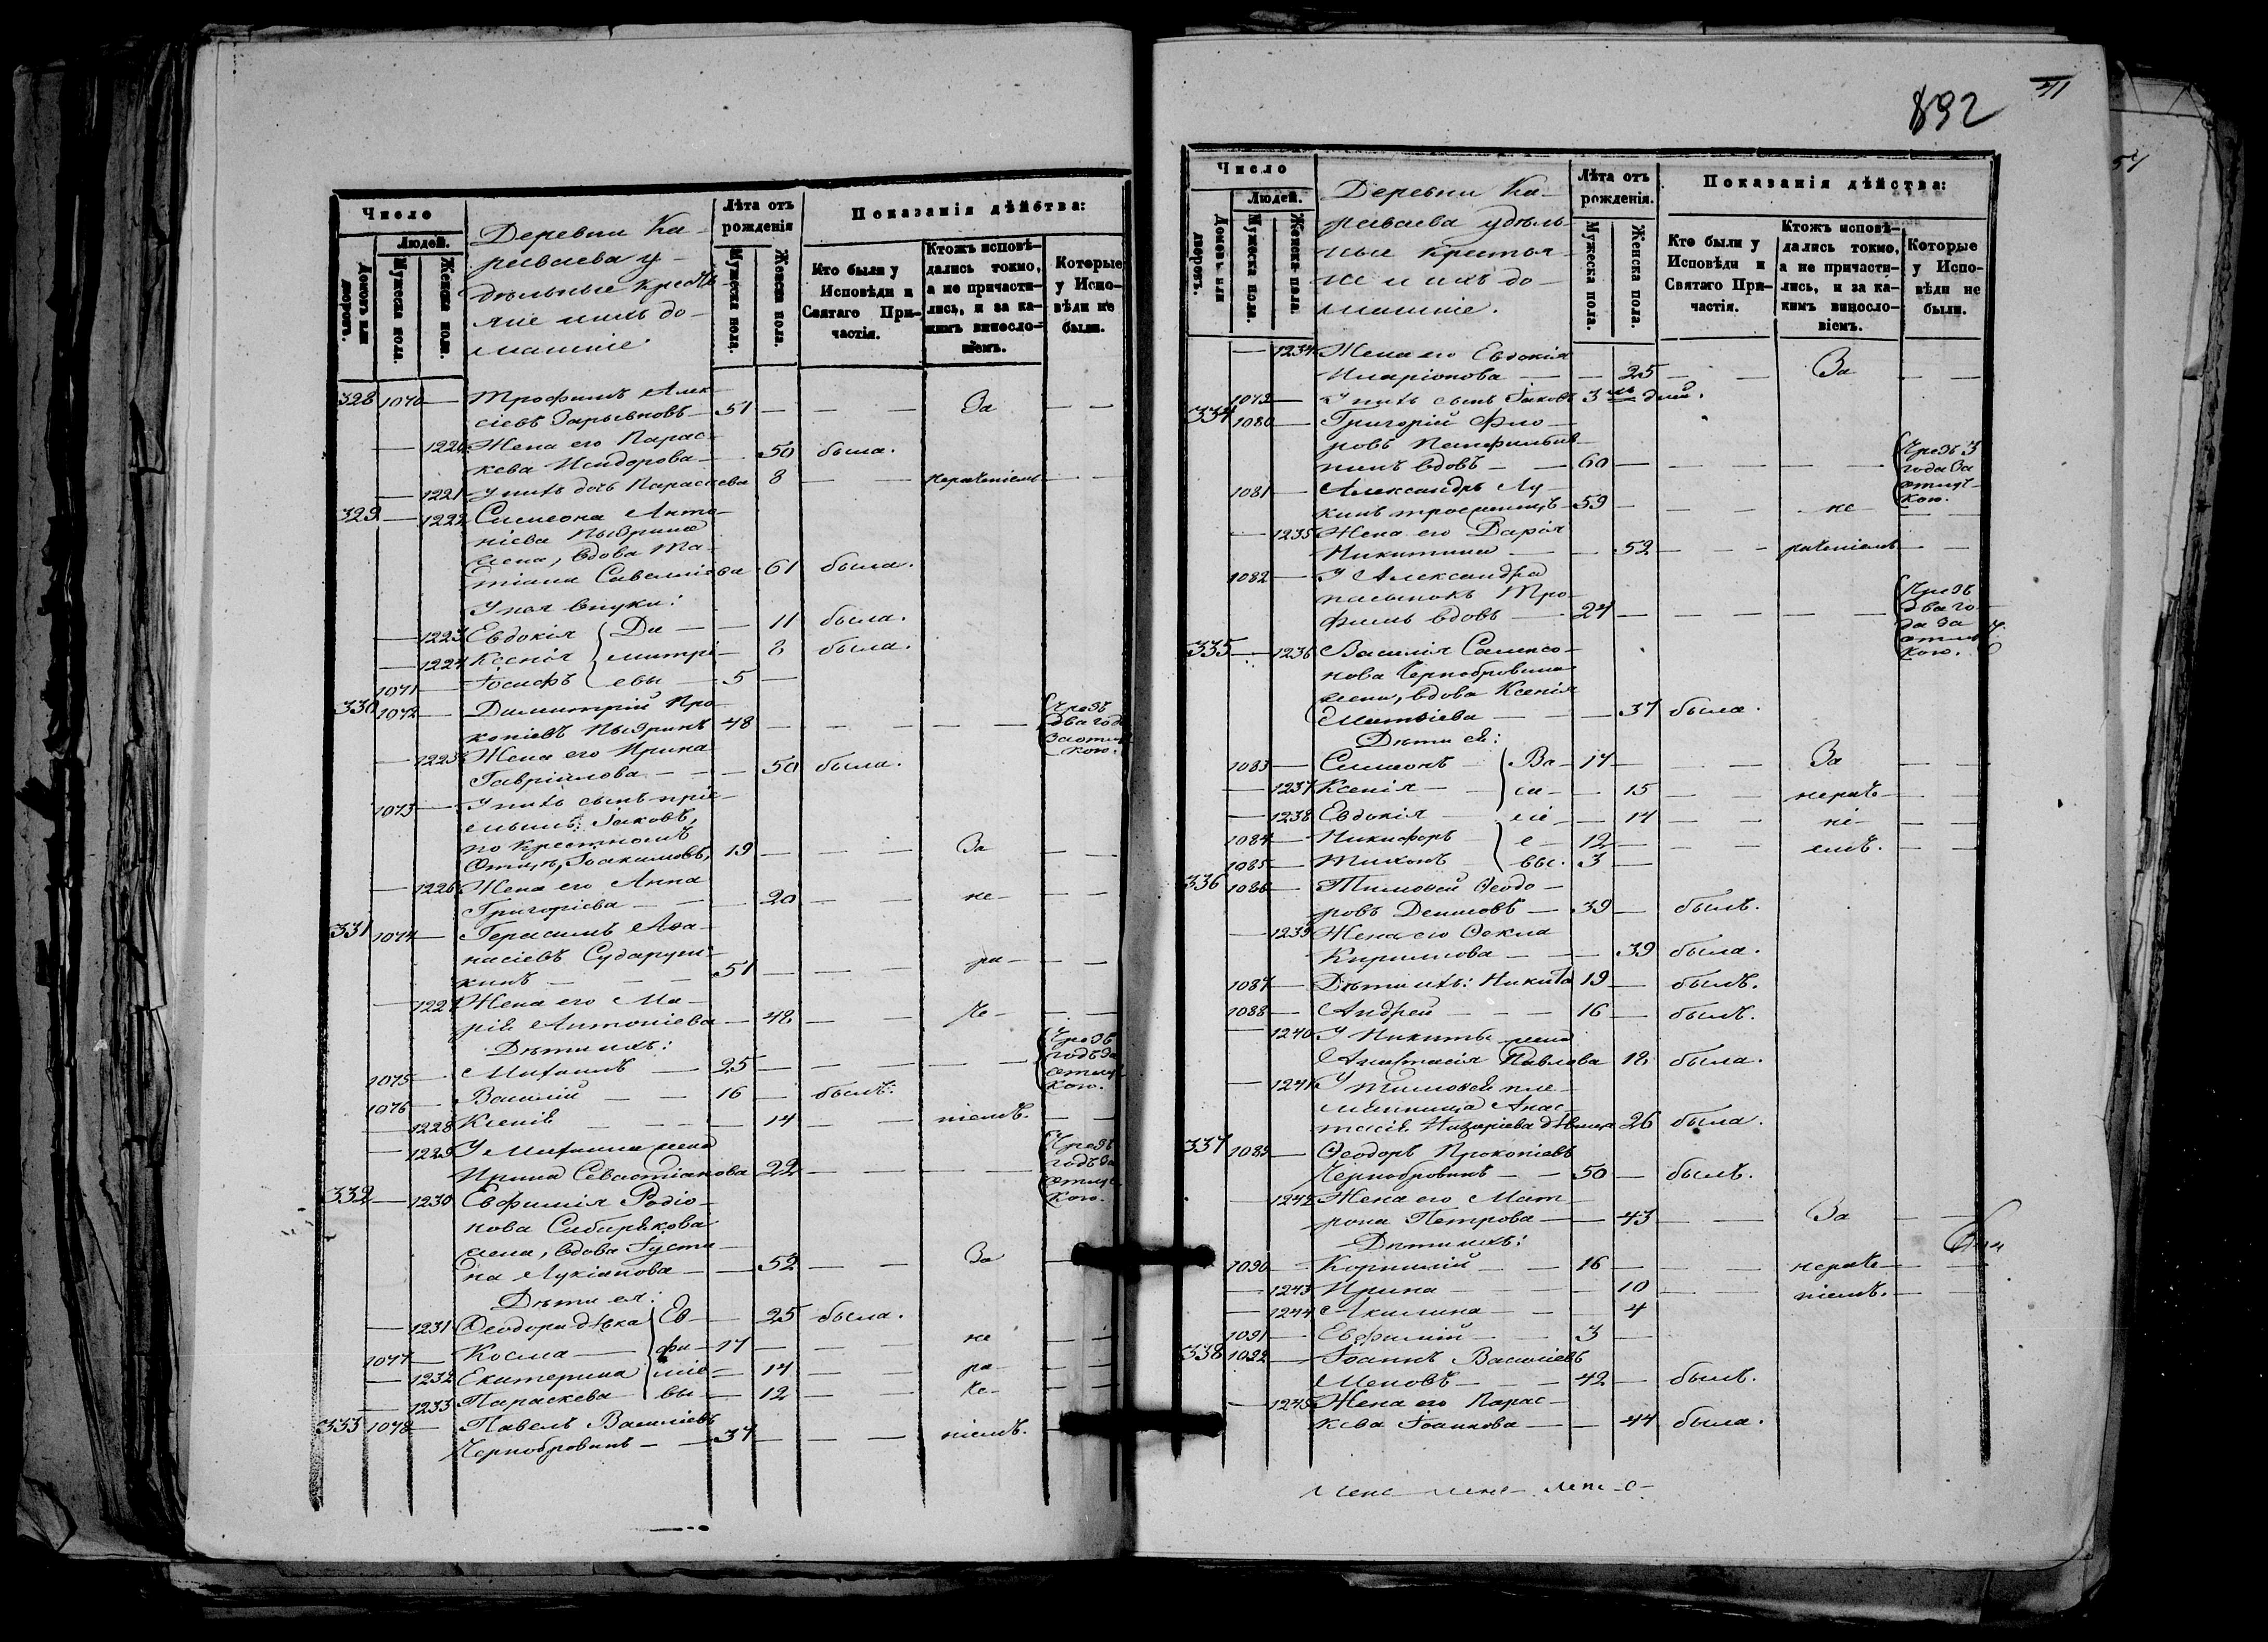 Число
Людей.
Домовъ или дворовъ.
Мужеска пола.
Женска пола.
Деревни Ка-
реваева у-
дѣльные крестья-
не и ихъ до-
машніе.
Лѣта отъ рожденія
Мужеска пола.
Женска пола.
Показанія дѣйства:
Кто были у Исповѣди и Святаго Причастія.
Ктожъ исповѣдались токмо, а не причастились, и за какимъ винословіемъ.
Которые у Исповѣди не были.
328 1070 — Трофимъ Алек-
сіевъ — 51 — — — За — —
— 1220 Жена его Парас-
кева Исидорова — 50 была.
— 1221 У нихъ дочь Параскева 8 — — нераченіемъ — —
329 — 1222 Симеона Анто-
ніева Пыдрина
жена, вдова Та-
тіана Савелліева 61 была.
У нея внуки:
— 1223 Евдокія Ди — 11 была.
— 1224 Ксенія митрі- 8 была.
1071 — Іосифъ евы — 5 —
330 1072 — Димитрій Про-
копіевъ Пыдринъ 48 — — — — Чрезъ два года за отлуч-
кою.
— 1225 Жена его Ирина
Гавріилова — — 50 была.
1073 — У нихъ сынъ прі-
емышъ: Іаковъ,
по крестному
отцу, Іоакимовъ, 19 — — — За — —
— 1226 Жена его Анна
Григоріева — — 20 — — не — —
331 1074 — Герасимъ Аѳа-
насіевъ Сударуш-
кинъ — — 51 — — — ра — —
— 1227 Жена его Ма-
рія Антоніева — 48 — — че — —
Дѣти ихъ:
1075 — Михаилъ — 25 — — — — Чрезъ годъ за отлуч-
кою.
1076 — Василій — — 16 — былъ.
— 1228 Ксенія — — — 14 — — ніемъ. — —
— 1229 У Михаила жена
Ирина Севастіанова 22 — — — Чрезъ годъ за отлуч-
кою.
332 — 1230 Евфимія Родіо-
нова Сибирякова
жена, вдова Іусти-
на Лукіанова — — 52 — — За —
Дѣти ея:
— 1231 Ѳеодора дѣвка Ев — 25 была.
1077 — Косма — фи — 17 — — — не — —
— 1232 Екатерина міе — 14 — — ра — —
— 1233 Параскева вы — 12 — — че — —
333 1078 — Павелъ Василіевъ
Чернобровинъ — 37 — — — ніемъ. —
892
Число
Людей.
Домовъ или дворовъ.
Мужеска пола.
Женска пола.
Деревни Ка-
реваева удѣль-
ные крестья-
не и ихъ до-
машніе.
Лѣта отъ рожденія.
Мужеска пола.
Женска пола.
Показанія дѣйства:
Кто были у Исповѣди и Святаго Причастія.
Ктожъ исповѣдались токмо, а не причастились, и за какимъ винословіемъ.
Которые у Исповѣди не были.
— 1234 Жена его Евдокія
Иларіонова — — 25 — — За — —
1079 — У нихъ сынъ Іаковъ 3 дней.
334 1080 — Григорій Фло-
ровъ
вдовъ — — 60 — — — — Чрезъ 3 года за отлуч-
кою.
1081 — Александръ Лу-
кинъ 59 — — — не — —
— 1235 Жена его Дарія
Никитина — — 52 — — раченіемъ — —
1082 — У Александра
пасынокъ Тро-
фимъ вдовъ — 27 — — — — Чрезъ два го-
да за отлуч-
кою.
335 — 1236 Василія Самсо-
нова Чернобровина
жена, вдова Ксенія
Матѳіева — — 37 была.
Дѣти ея:
1083 — Симеонъ — Ва — 17 — — — За — —
— 1237 Ксенія — си — 15 — — нераче — —
— 1238 Евдокія — ліе — 14 — — ні — —
1084 — Никифоръ е — 12 — — — емъ. — —
1085 — Тихонъ вы. 3 —
336 1086 — Тимоѳей Ѳеодо-
ровъ Демидовъ — 39 — былъ.
— 1239 Жена его Ѳекла
Кириллова — — 39 была.
1087 — Дѣти ихъ: Никита 19 — былъ.
1088 — Андрей — — — 16 — былъ.
— 1240 У Никиты жена
Анастасія Павлова 18 была.
— 1241 У Тимоѳея пле-
мянница Анас-
тасія Назаріева дѣвица 26 была.
337 1089 — Ѳеодоръ Прокопіевъ
Чернобровинъ — — 50 — былъ.
— 1242 Жена его Мат-
рона Петрова — — 43 — — За — —
Дѣти ихъ:
1090 — Корнилій — — 16 — — — нераче — —
— 1243 Ирина — — — 10 — — ніемъ. — —
— 1244 Акилина — — — 4
1091 — Евфимій — — 3 —
338 1092 — Іоаннъ Василіевъ
— — 42 — былъ.
— 1245 Жена его Парас-
кева Іоаннова — — 44 была.